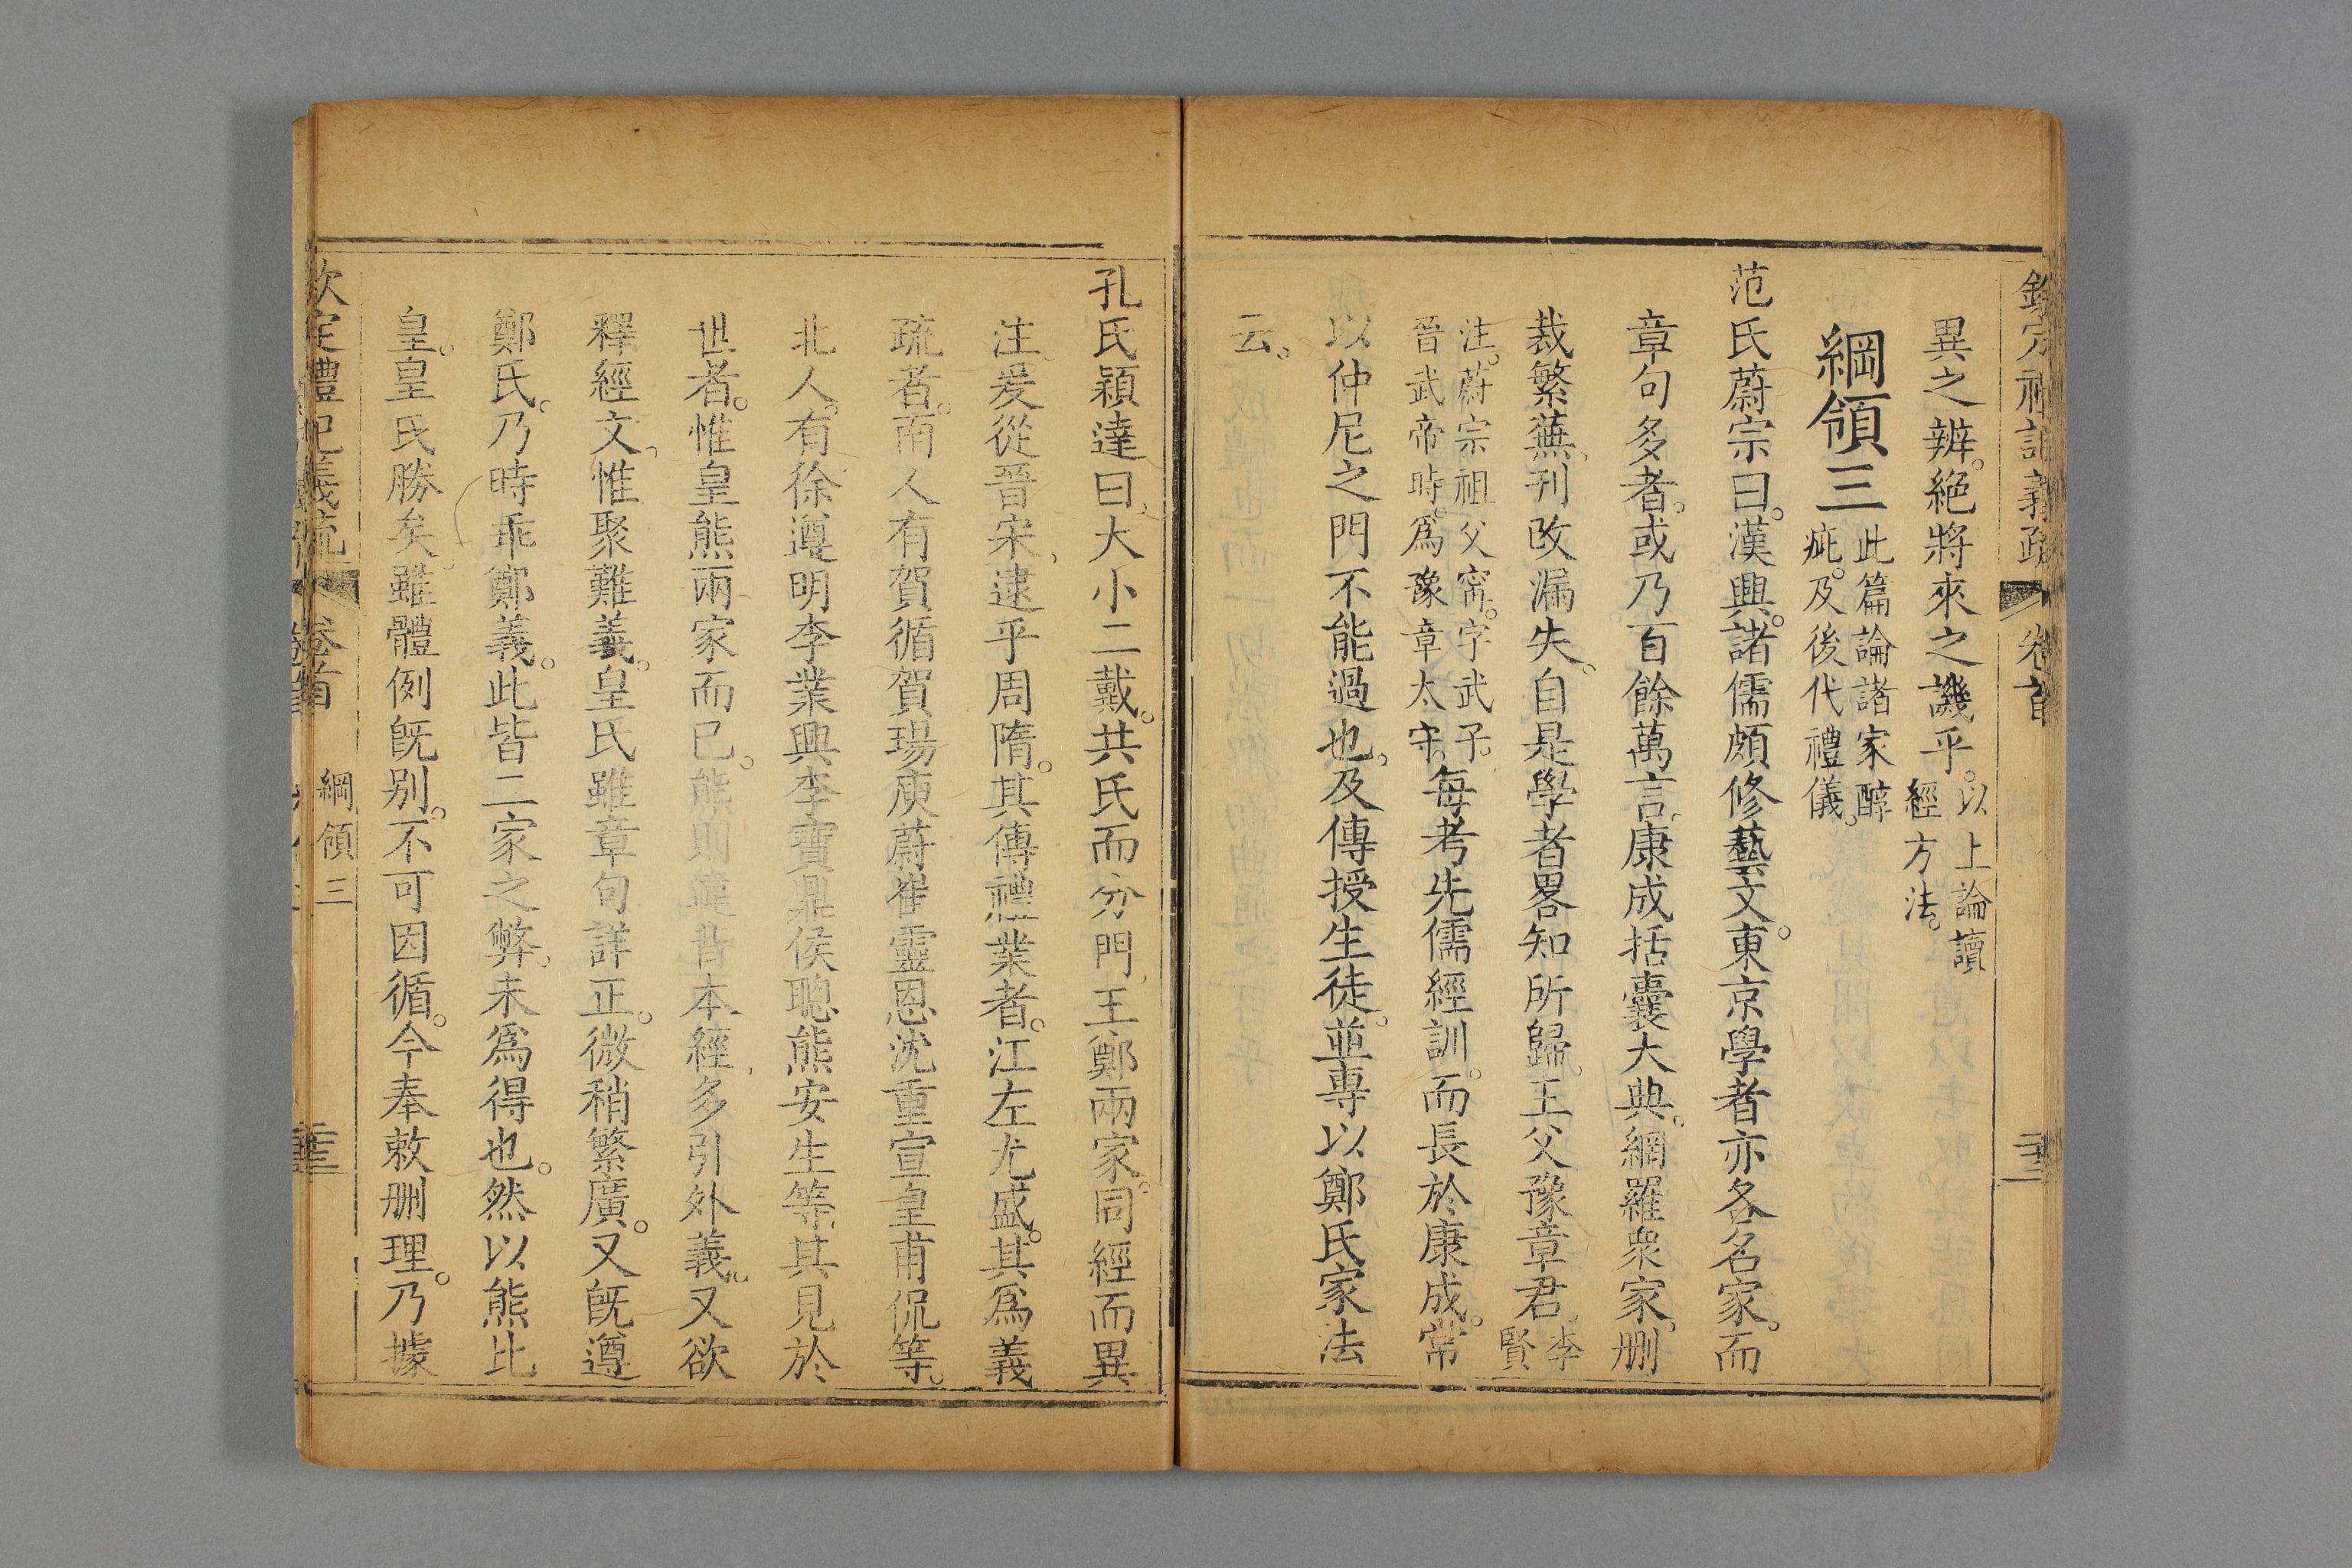 欽定禮記義疏 卷首
異之辨。絕將來之譏乎。以上論讀
經方法。
綱領三 此篇論諸家醇
疵。及後代禮儀。
范氏蔚宗曰。漢興。諸儒頗修藝文。東京學者亦各名家。而
章句多者。或乃百餘萬言、康成括囊大典。網羅衆家。刪
裁繁蕪、刊改漏失。自是學者畧知所歸。王父豫章君。李賢
注。蔚宗祖父甯。字武子。
晉武帝時。爲豫章太守。每考先儒經訓。而長於康成。常
以仲尼之門不能過也。及傳授生徒。並專以鄭氏家法
云。
孔氏穎達曰、大小二戴。共氏而分門、王鄭兩家。同經而異
注、爰從晉宋、逮乎周隋。其傳禮業者。江左尤盛。其爲義
疏者。南人有賀循賀瑒庾蔚崔靈恩沈重宣皇甫侃等。
北人。有徐遵明李業興李寶鼎侯聰熊安生等、其見於
世者。惟皇熊兩家而已。熊則違背本經、多引外義。又欲
釋經文、惟聚難義。皇氏雖章句詳正。微稍繁廣。又旣遵
鄭氏。乃時乖鄭義。此皆二家之弊、未爲得也。然以熊比
皇。皇氏勝矣。雖體例旣別。不可因循。今奉敕刪理。乃據
欽定禮記義疏 卷首 綱領三